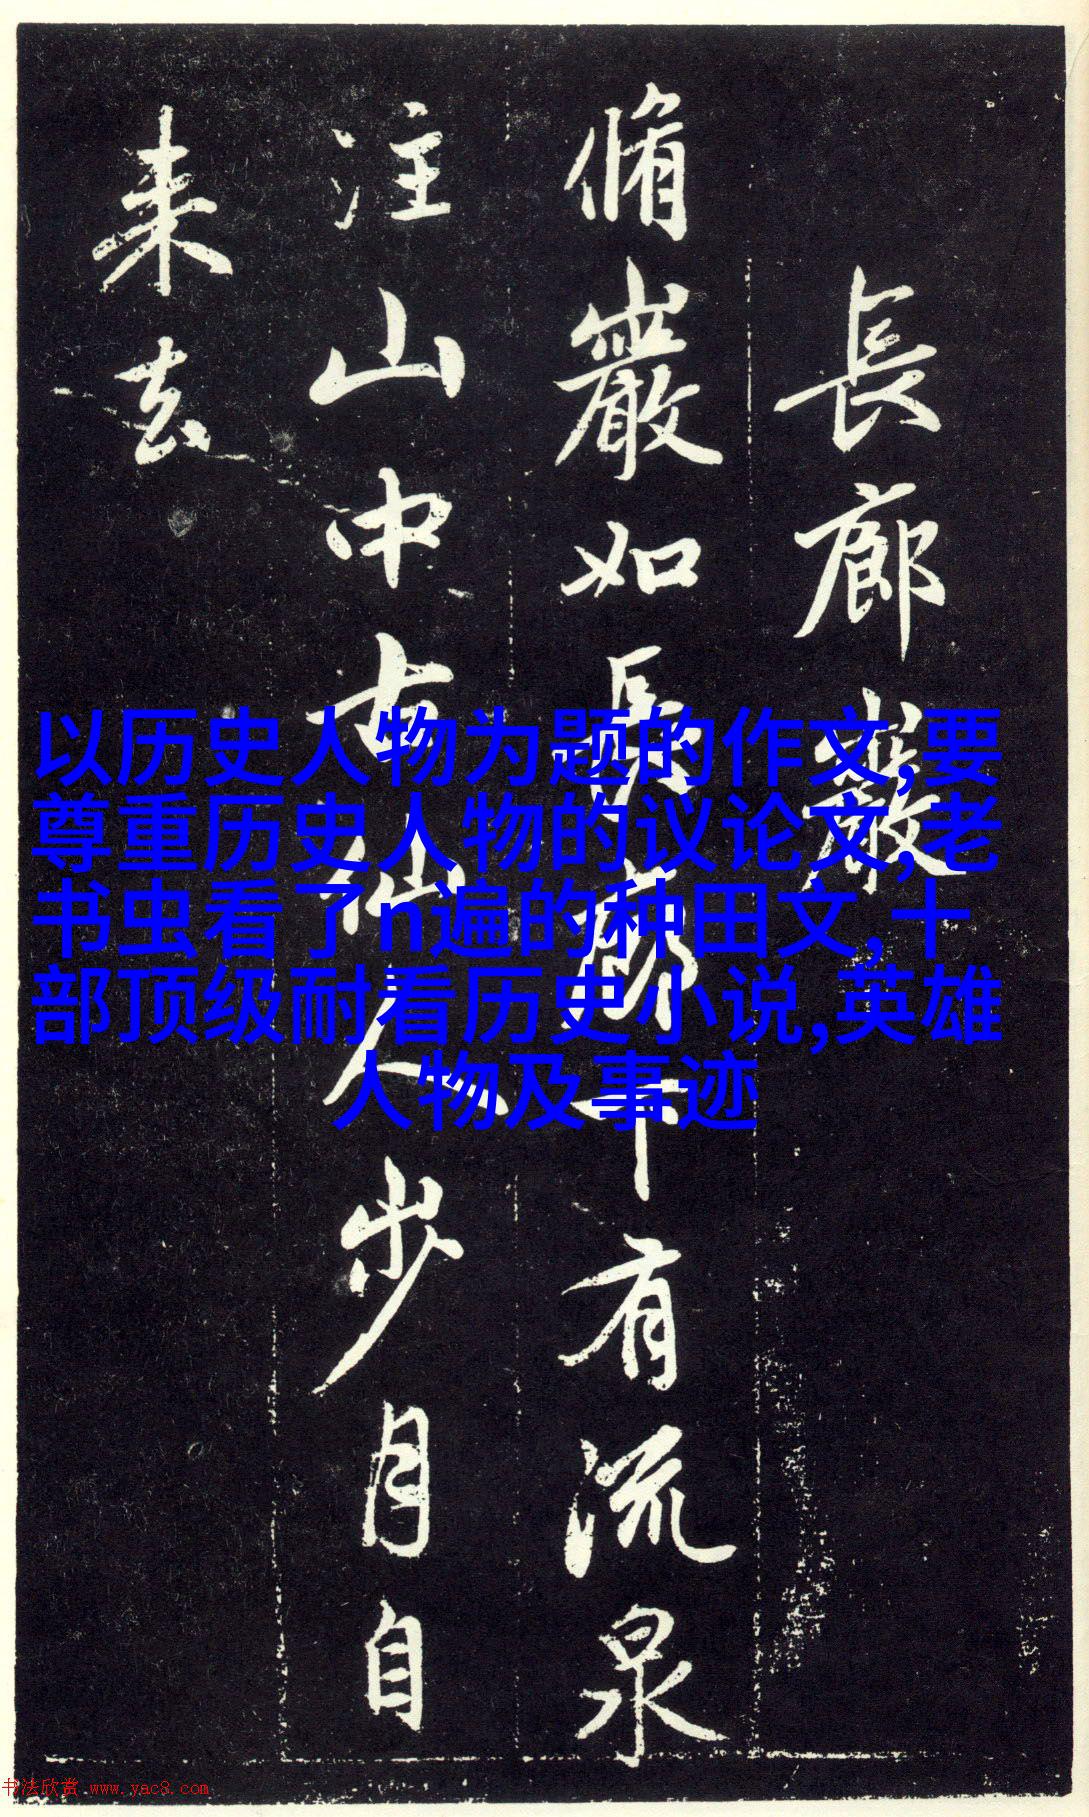 長廊巖
脩巖如長廊下有流泉
注山中古仙人步月自
来去
以历史人物为题的作文,要
尊重历史人物的议论文,老
书虫看了n遍的种田文,十
部顶级耐看历史小说,英雄
人物及事迹
书法欣赏 www.yac8.com